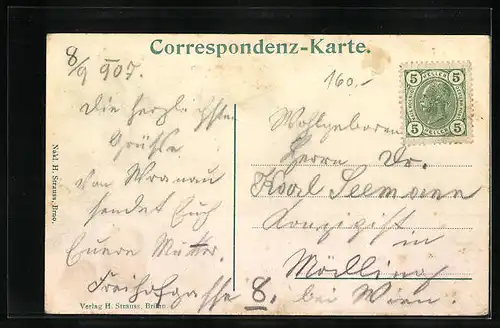 8/9 907.
Correspondenz-Karte.
160.-
5 HELLER 5
5 HELLER 5
Die herzlichsten
Grüsse
von Wranau
sendet Euch
Euere Mutter.
Wohlgeboren
Herrn Dr.
Karl Seemann
Konzipist in
Mödling
bei Wien.
Freihofgasse 8.
Nakl. H. Strauss, Brno.
Verlag H. Strauss, Brünn.